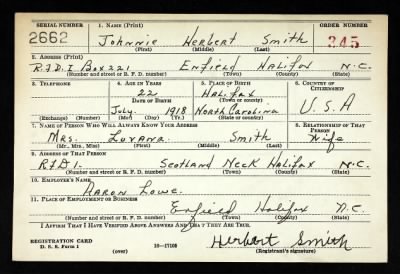 SERIAL NUMBER 1. NAME (Print) ORDER NUMBER
2662 Johnnie Herbert Smith 345
(First) (Middle) (Last)
2. ADDRESS (Print)
R.F.D. 1 Box 221 Enfield Halifax N.C.
(Number and street or R. F. D. number) (Town) (County) (State)
3. TELEPHONE 4. AGE IN YEARS 5. PLACE OF BIRTH 6. COUNTRY OF CITIZENSHIP
22 Halifax
DATE OF BIRTH (Town or county)
July 1918 North Carolina U.S.A
(Exchange) (Number) (Mo.) (Day) (Yr.) (State or country)
7. NAME OF PERSON WHO WILL ALWAYS KNOW YOUR ADDRESS 8. RELATIONSHIP OF THAT PERSON
Mrs. Smith Wife
(Mr., Mrs., Miss) (First) (Middle) (Last)
9. ADDRESS OF THAT PERSON
RFD 1. Scotland Neck Halifax N.C.
(Number and street or R. F. D. number) (Town) (County) (State)
10. EMPLOYER'S NAME
Aaron Lowe.
11. PLACE OF EMPLOYMENT OR BUSINESS
Enfield Halifax N.C.
(Number and street or R. F. D. number) (Town) (County) (State)
I AFFIRM THAT I HAVE VERIFIED ABOVE ANSWERS AND THAT THEY ARE TRUE.
REGISTRATION CARD
D. S. S. Form 1 16—17105 Herbert Smith
(over) (Registrant's signature)